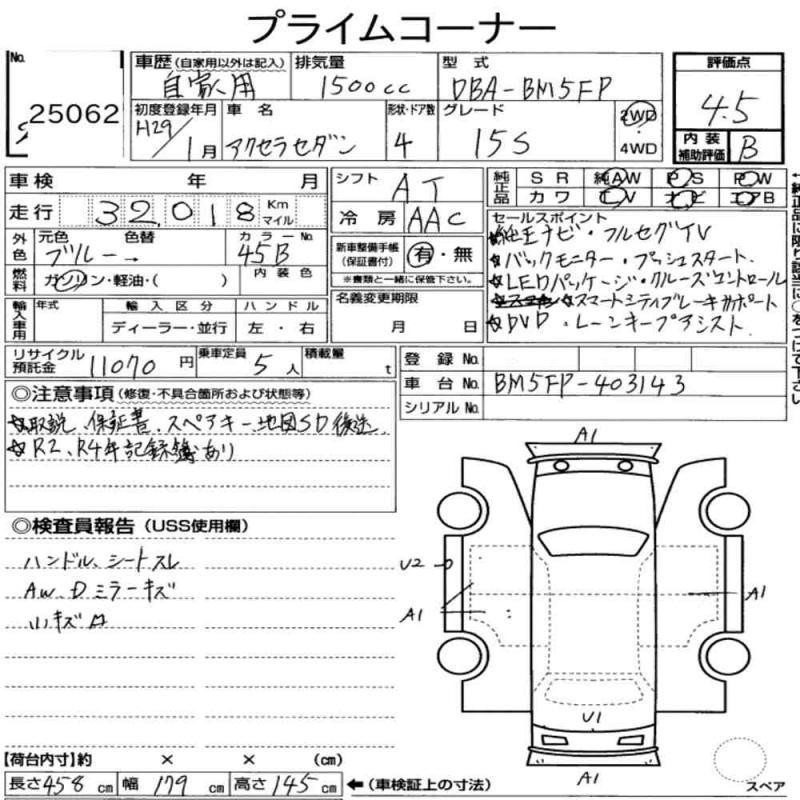 プライムコーナー
No. 25062
車歴 (自家用以外は記入) 自家用
排気量 1500cc
型式 DBA-BM5FP
評価点 4.5
初度登録年月 H29/1月
車名 アクセラセダン
形状・ドア数 4
グレード 15S
2WD
4WD
内装補助評価 B
車検 年 月
シフト AT
純正品 SR 純AW PS PW
カワ TV ナビ エアB
走行 32,018 Km マイル
冷房 AAC
セールスポイント
☆純正ナビ・フルセグTV
☆バックモニター・プッシュスタート
☆LEDパッケージ・クルーズコントロール
☆スマートシティブレーキサポート
☆DVD・レーンキープアシスト
外色 元色 ブルー → 色替
カラーNo. 45B
新車整備手帳 (保証書付) 有・無
※書類と一緒に保管下さい。
燃料 ガソリン・軽油・( )
内装色
名義変更期限
月 日
輸入車用 年式 輸入区分 ハンドル
ディーラー・並行 左・右
リサイクル預託金 11070円
乗車定員 5人
積載量 t
登録No.
車台No. BM5FP-403143
シリアルNo.
◎注意事項 (修復・不具合箇所および状態等)
☆取説、保証書、スペアキー、地図SD後送
☆R2、R4年記録簿あり
◎検査員報告 (USS使用欄)
ハンドル、シートスレ
AW、Dミラーキズ
小キズ
A1
U2
A1
A1
U1
A1
スペア
【荷台内寸】約 × × (cm)
長さ458cm 幅179cm 高さ145cm ←(車検証上の寸法)